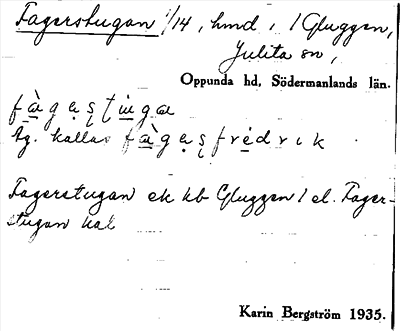 Fagerstugan 1/14, hmd i 1 Gluggen,
Julita sn,
Oppunda hd, Södermanlands län.
fàgeʂʈùga
Äg. kallas fàgeʂfrédrik
Fagerstugan ek kb Gluggen 1 el. Fager-
stugan kal
Karin Bergström 1935.